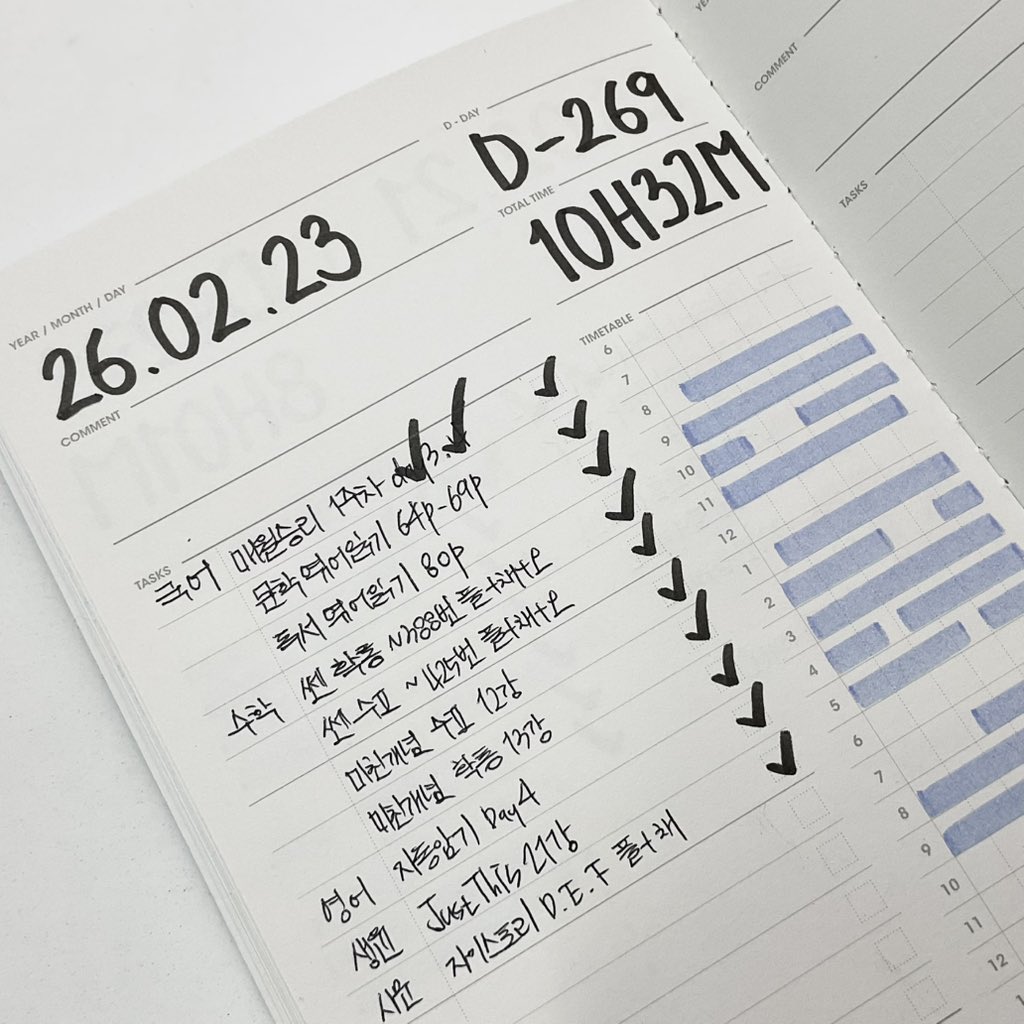 D - DAY
D-269
TOTAL TIME
10H32M
YEAR / MONTH / DAY
26.02.23
COMMENT
TASKS
국어 매월승리 1주차
문학 엮어읽기 64p-69p
독서 엮어읽기 80p
수학 쎈 확통 ~388번 풀+채+오
쎈 수I ~425번 풀+채+오
미친개념 수I 12강
미친개념 확통 13강
영어 자동암기 Day4
생윤 Just This 21강
사문 자이스토리 D.E.F 풀+채
TIMETABLE
6
7
8
9
10
11
12
1
2
3
4
5
6
7
8
9
10
11
12
1
COMMENT
TASKS